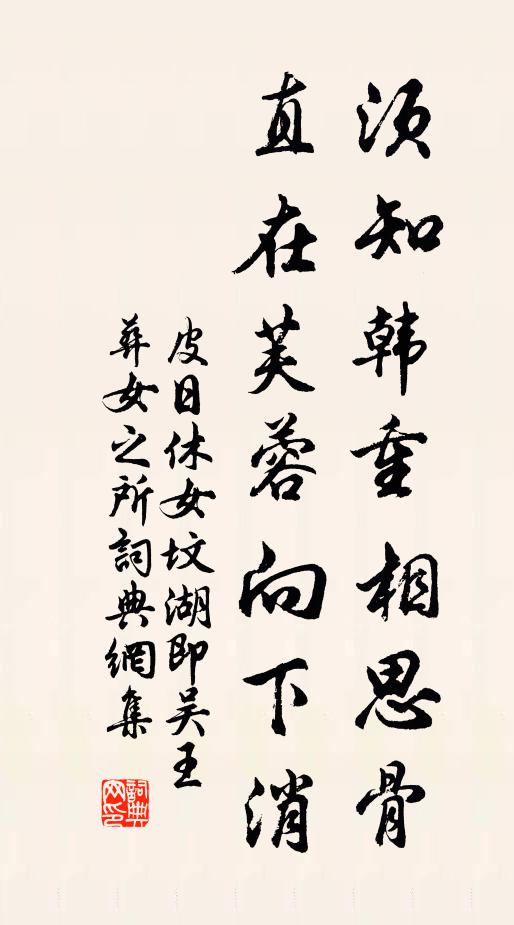 须知韩重相思骨
直在芙蓉向下消
皮日休女坟湖即吴王
葬女之所詞典網集
詞典
网印